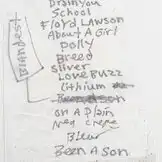 Drain you
School
Floyd LAWSON
About A Girl
Polly
Breed
Sliver
Love Buzz
Lithium
on A plain
Neg creme
Blew
Been A Son